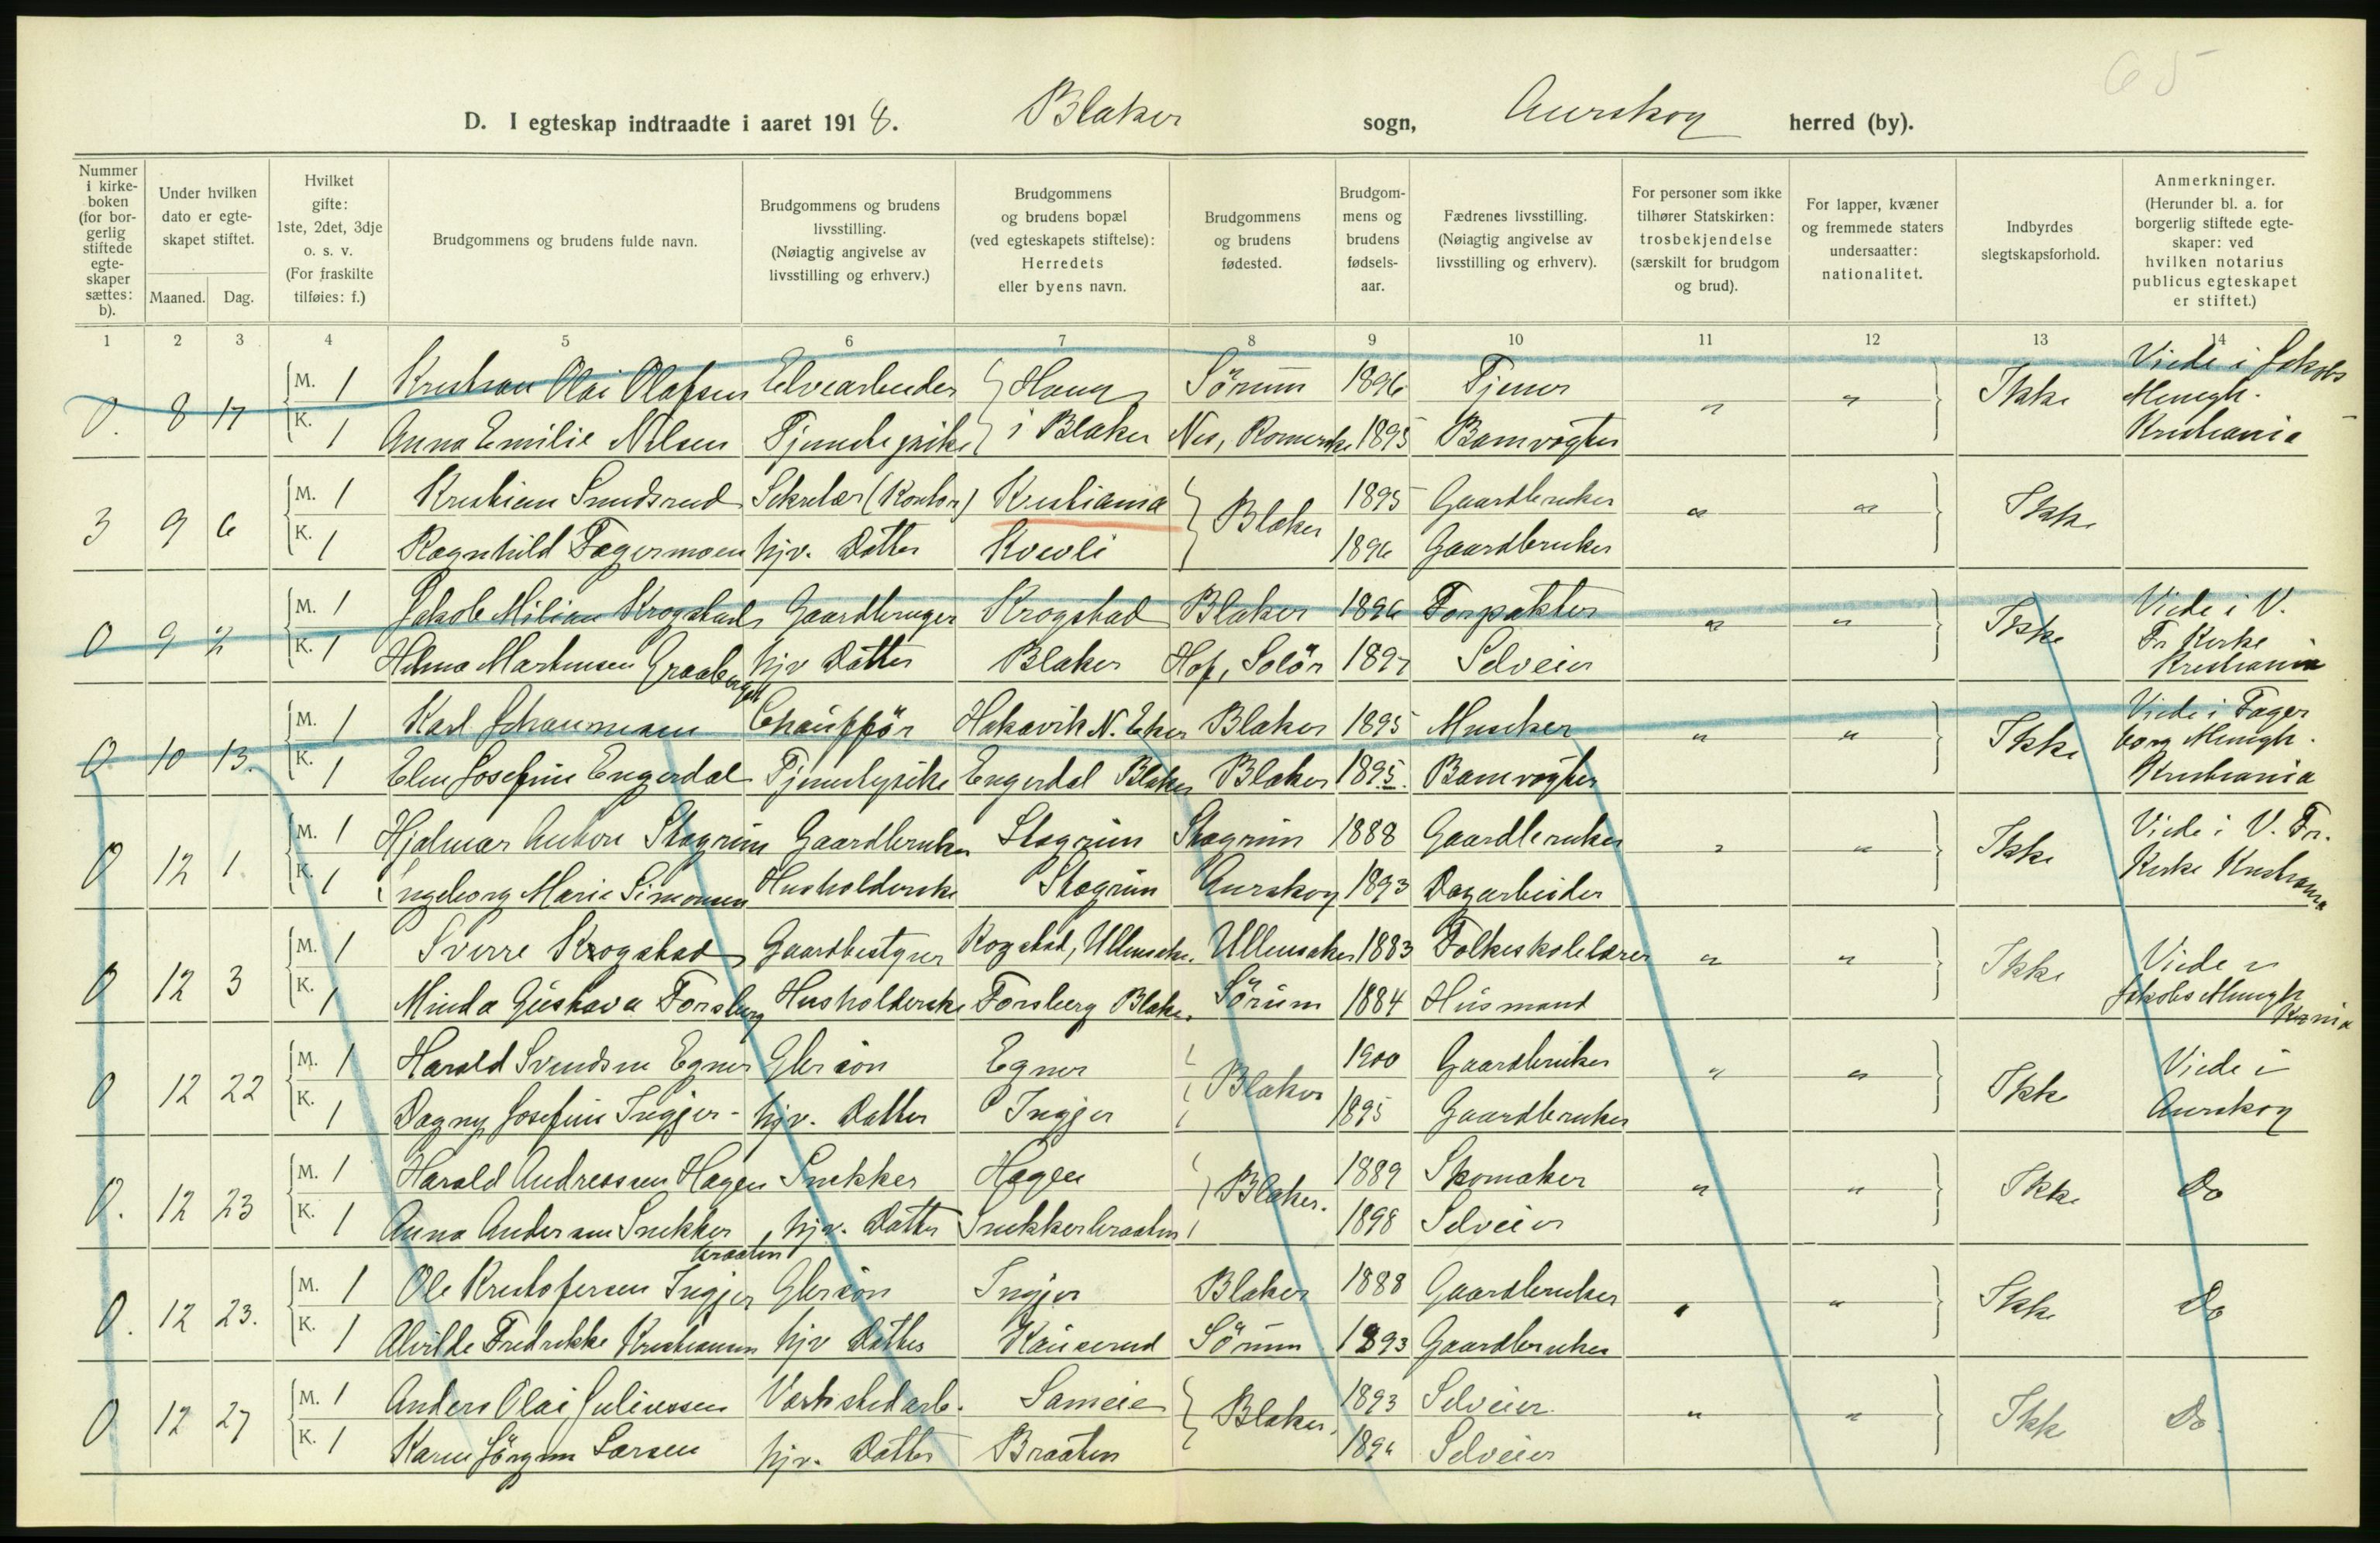 65
D. I egteskap indtraadte i aaret 1918. Blaker sogn, Aurskog herred (by).
Nummer i kirkeboken (for borgerlig stiftede egteskaper sættes: b).
Under hvilken dato er egteskapet stiftet.
Maaned. Dag.
Hvilket gifte: 1ste, 2det, 3dje o. s. v. (For fraskilte tilføies: f.)
Brudgommens og brudens fulde navn.
Brudgommens og brudens livsstilling. (Nøiagtig angivelse av livsstilling og erhverv.)
Brudgommens og brudens bopæl (ved egteskapets stiftelse): Herredets eller byens navn.
Brudgommens og brudens fødested.
Brudgommens og brudens fødselsaar.
Fædrenes livsstilling. (Nøiagtig angivelse av livsstilling og erhverv).
For personer som ikke tilhører Statskirken: trosbekjendelse (særskilt for brudgom og brud).
For lapper, kvæner og fremmede staters undersaatter: nationalitet.
Indbyrdes slegtskapsforhold.
Anmerkninger. (Herunder bl. a. for borgerlig stiftede egteskaper: ved hvilken notarius publicus egteskapet er stiftet.)
1 2 3 4 5 6 7 8 9 10 11 12 13 14
0. 8 17 M. 1 Kristian Olai Olafsen Elvearbeider Haug Sörum 1896 Tjener " " Ikke Viede i Jakobs Menigh. Kristiania
K. 1 Anna Emilie Nilsen Tjenestepike i Blaker Nes, Romerike 1895 Banevogter
3 9 6 M. 1 Kristian Smedsrud Sekretær (Kontor) Kristiania Blaker 1895 Gaardbruker " " Ikke
K. 1 Ragnhild Fagermoen hjv. Datter Kvevli 1896 Gaardbruker
0 9 M. 1 Jakob Milian Krogstad Gaardbruger Krogstad Blaker 1896 Forpakter " " Ikke Viede i V. Fr Kirke Kristiania
K. 1 Helma Martinsen Graaberget hjv Datter Blaker Hof, Solör 1897 Selveier
0. 10 13. M. 1 Karl Schaumann Chaufför Hakavik N. Eker Blaker 1895 Musiker " " Ikke Viede i Fagerborg Menigh. Kristiania
K. 1 Elen Josefine Engerdal Tjenestepike Engerdal Blaker Blaker 1895. Banevogter
0 12 1. M. 1 Hjalmar Anton Stagrim Gaardbruker Stagrim Stagrim 1888 Gaardbruker " " Ikke Viede i V. Fr. Kirke Kristiania
K. 1 Ingeborg Marie Simonsen Husholderske Stagrim Aurskog 1893 Dagarbeider
0 12 3 M. 1 Sverre Krogstad Gaardbestyrer Kogstad, Ullensaker. Ullensaker 1883 Folkeskolelærer " " Ikke Viede i Jakobs Menigh Kr.nia
K. 1 Minda Gustava Forsberg Husholderske Forsberg Blaker. Sörum 1884 Husmand
0 12 22 M. 1 Harald Svendsen Egner Gbr sön Egner Blaker 1900 Gaardbruker " " Ikke Viede i Aurskog
K. 1 Dagny Josefine Ingjer - hjv. Datter Ingjer 1895 Gaardbruker
0. 12 23 M. 1 Harald Andreassen Hagen Snekker Hagen Blaker. 1889 Skomaker " " Ikke Do
K. 1 Anna Andersen Snekkerbraaten hjv. Datter Snekkerbraaten 1898 Selveier
0. 12 23. M. 1 Ole Kristofersen Ingjer Gbr sön Ingjer Blaker 1888 Gaardbruker " " Ikke Do
K. 1 Alvilde Fredrikke Kristiansen hjv Datter Kauserud Sörum 1893 Gaardbruker
0 12 27 M. 1 Anders Olai Juliussen Verkstedarb. Sameie Blaker. 1893 Selveier " " Ikke Do.
K. 1 Karen Jörgine Larsen hjv. Datter Braaten 1896 Selveier